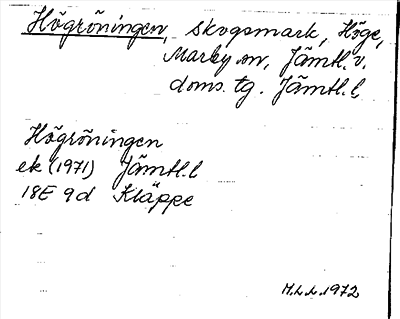 Högröningen, skogsmark, Höge,
Marby sn, Jämtl. v.
doms. tg. Jämtl. l
Högröningen
ek (1971) Jämtl. l
18E 9d Kläppe
M.L.L. 1972